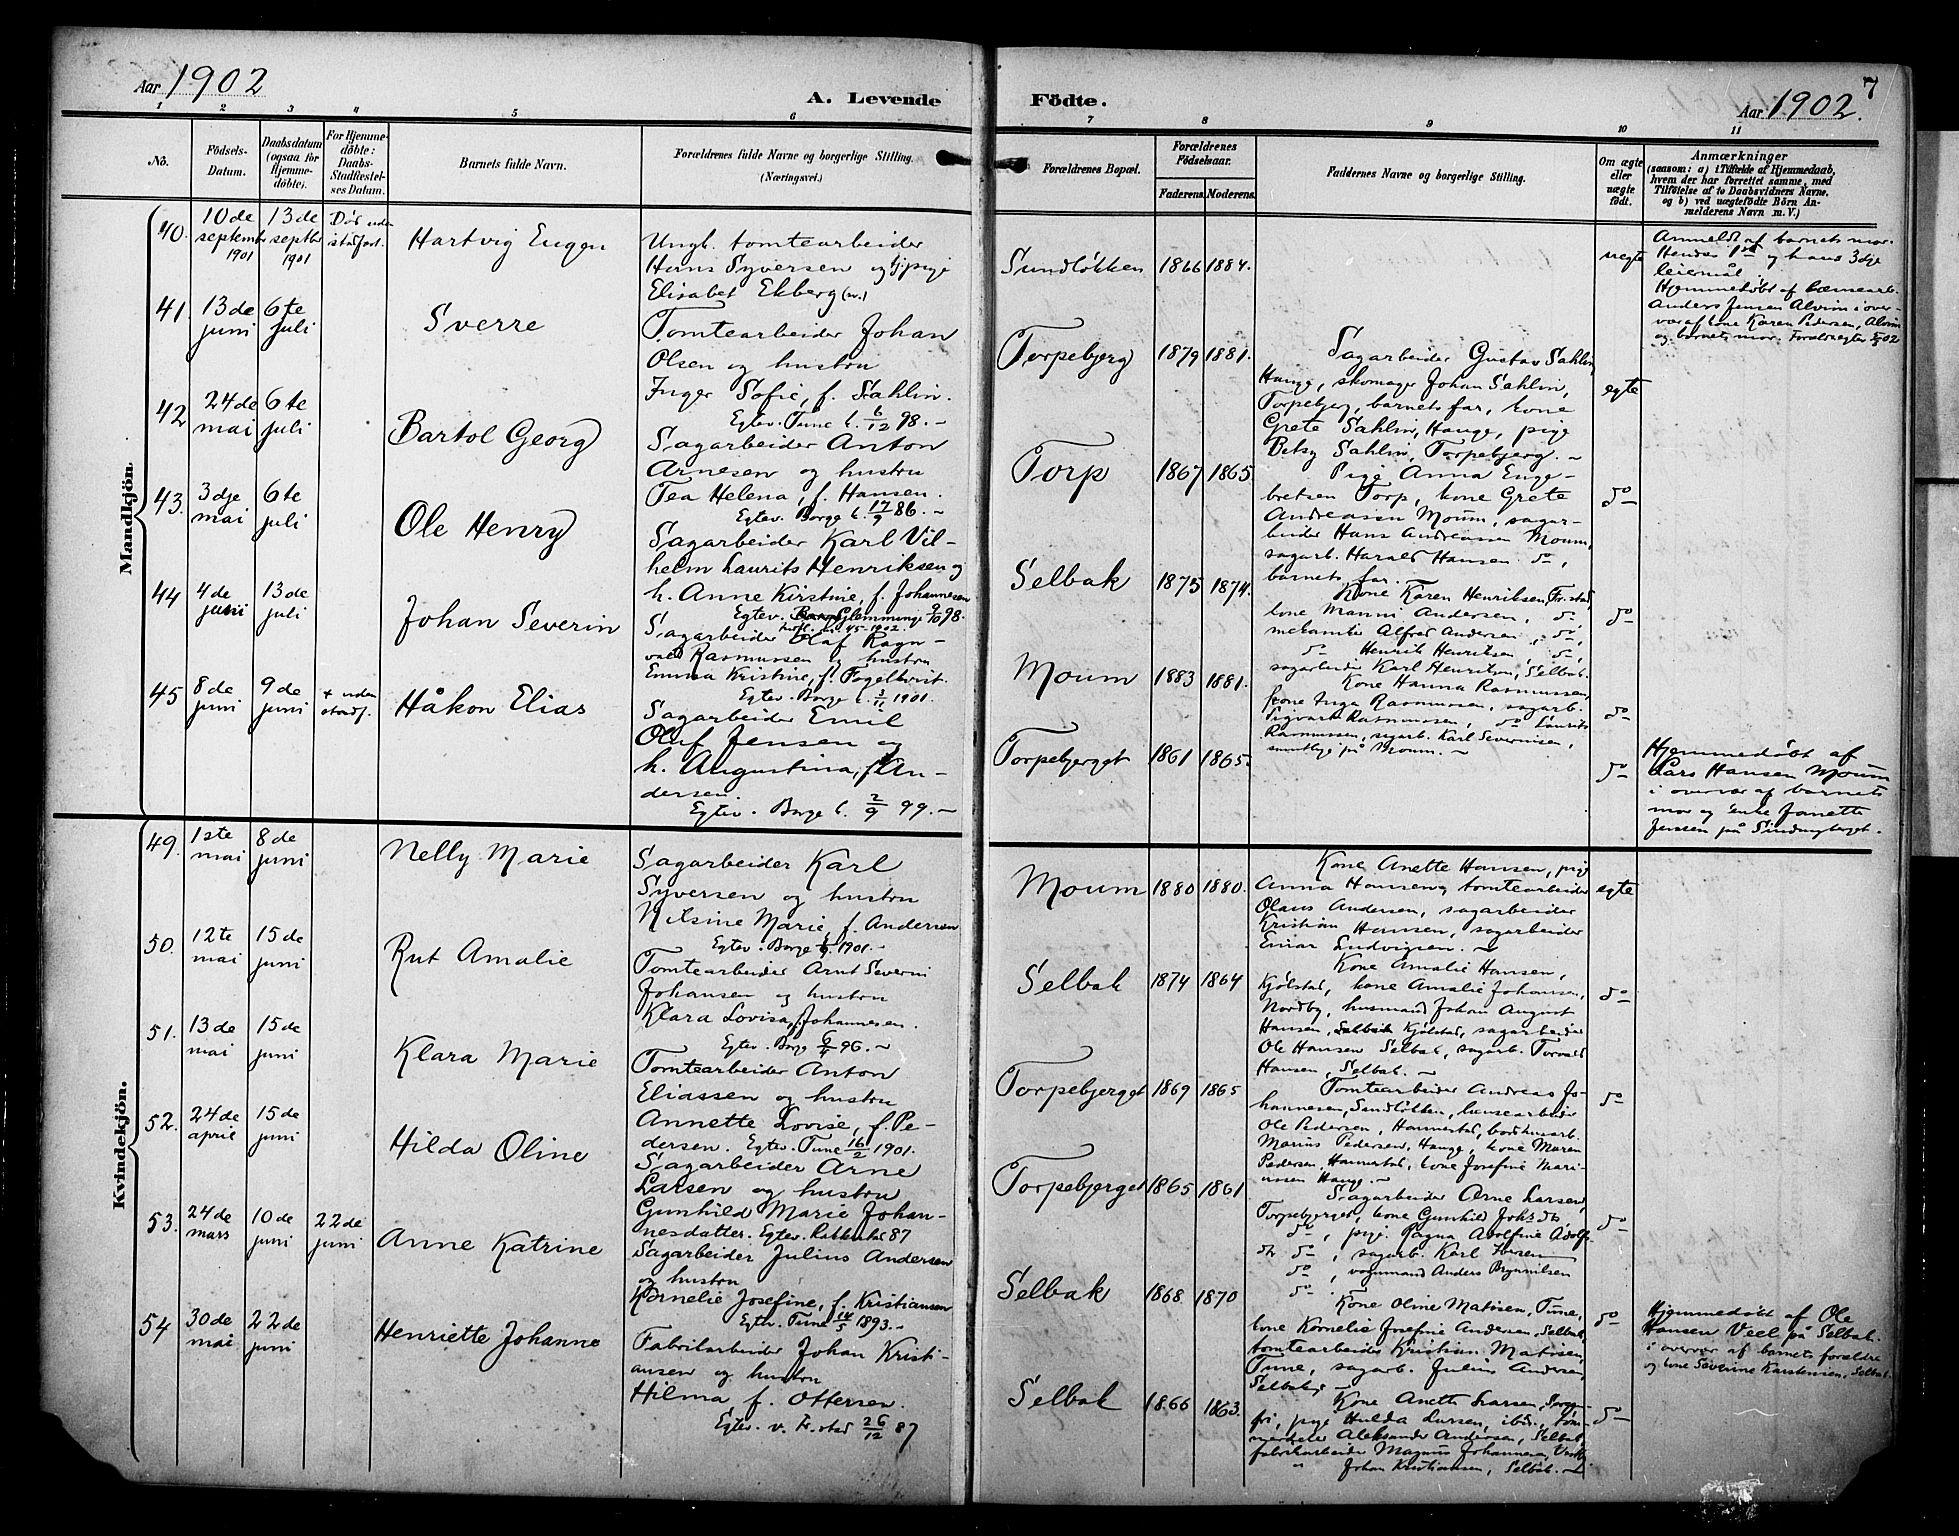 Aar 1902
A. Levende
1 2 3 4 5 6
No.
Fødsels-
Datum.
Daabsdatum
(ogsaa for
Hjemme-
døbte).
For Hjemme-
døbte:
Daabs-
Stadfæstel-
ses Datum.
Barnets fulde Navn.
Forældrenes fulde Navne og borgerlige Stilling.
(Næringsvei.)
Mandkjön.
40.
10de
september
1901
13de
septbr
1901
Død uden
stadfæst.
Hartvig Eugen
Ungk. tomtearbeider
Hans Syversen og tj.pige
Elisabet Ekberg
41.
13de
juni
6te
juli
Sverre
Tomtearbeider Johan
Olsen og hustru
Inger Sofie, f. Sahlin.
Egtev. Tune k. 6/12 98. –
42
24de
mai
6te
juli
Bartol Georg
Sagarbeider Anton
Arnesen og hustru
Tea Helena, f. Hansen.
Egtev. Borge k. 17/9 86. –
43.
3dje
mai
6te
juli
Ole Henry
Sagarbeider Karl Vil-
helm Laurits Henriksen og
h. Anne Kirstine, f. Johannesen
Egtev. Glemminge 98.
44
4de
juni
13de
juli
Johan Severin
Sagarbeider Olaf Ragn-
vald Rasmussen og hustru
Emma Kristine, f. Fogelkvist.
Egtev. Borge k. 1901.
45
8de
juni
9de
juni
+ uden
stadf.
Håkon Elias
Sagarbeider Emil
Oluf Jensen og
h. Augustina, f. An-
dersen
Egtev. Borge k. 2/9 99. –
Kvindekjön.
49.
1ste
mai
8de
juni
Nelly Marie
Sagarbeider Karl
Syversen og hustru
Nilsine Marie, f. Andersen
Egtev. Borge 1901. –
50.
12te
mai
15de
juni
Rut Amalie
Tomtearbeider Arnt Severin
Johansen og hustru
Klara Lovisa, f. Johannesen.
Egtev. Borge 96. –
51.
13de
mai
15de
juni
Klara Marie
Tomtearbeider Anton
Eliassen og hustru
Annette Lovise, f. Pe-
dersen. Egtev. Tune 16/2 1901.
52.
24de
april
15de
juni
Hilda Oline
Sagarbeider Arne
Larsen og hustru
Gunhild Marie Johan-
nesdatter. Egtev. Rakkestad 87
53.
24de
mars
10de
juni
22de
juni
Anne Katrine
Sagarbeider Julius Andersen
og hustru
Kornelie Josefine, f. Kristiansen
Egtev. Tune 14/5 1893. –
54
30de
mai
22de
juni
Henriette Johanne
Fabrikarbeider Johan Kristi-
ansen og hustru
Hilma, f. Ottersen.
Egtev. v. Fr.stad 26/12 87
Fødte.
7
Aar 1902.
7 8 9 10 11
Forældrenes Bopæl.
Forældrenes
Fødselsaar.
Faderens. Moderens.
Faddernes Navne og borgerlige Stilling.
Om ægte
eller
uægte
født.
Anmærkninger
(saasom: a) i Tilfælde af Hjemmedaab,
hvem der har forrettet samme, med
Tilføielse af to Daabsvidners Navne.
og b) ved uægtefødte Børn An-
melderens Navn m. V.)
Sundløkken 1866 1884. uegte
Anmeldt af barnets mor.
Hendes 1ste og hans 3dje
leiermål.
Hjemmedøbt af
Anders Jensen Alvim i over-
vær af kone Karen Pedersen, Alvim
og barnets mor.
Torpebjerg 1879 1881. egte
Sagarbeider Gustav Sahlin,
Hauge, skomager Johan Sahlin,
Torpebjerg, barnets far, kone
Grete Sahlin, Hauge, pige
Betsy Sahlin, Torpebjerg. –
Torp 1867 1865 do
Pige Anna Enge-
bretsen Torp, kone Grete
Andreasen Moum, sagar-
beider Hans Andreasen Moum,
sagarb. Harald Hansen do,
barnets far.
Selbak 1875 1874. do
Kone Karen Henriksen, Fr.stad,
kone Manni Andersen, do,
mekaniker Alfred Andersen, do,
do Henrik Henriksen do,
sagarbeider Karl Henriksen, Selbak.
Moum 1883 1881. do
Kone Hanna Rasmussen,
kone Inga Rasmussen, sagarb.
Sigvart Rasmussen, do Laurits
Rasmussen, sagarb. Karl Severinsen,
samtlige på Moum. –
Torpebjerget 1861 1865. do
Hjemmedøbt af
Lars Hansen Moum
i overvær af barnets
mor og enke Janette
Jenssen på
Moum 1880 1880. egte
Kone Anette Hansen, pige
Anna Hansen, tomtearbeider
Olaus Andersen, sagarbeider
Kristian Hansen, sagarbeider
Einar Ludvigsen. –
Selbak 1874 1864 do
Kone Amalie Hansen,
Kjølstad, kone Amalie Johansen,
Nordby, husmand Johan August
Hansen, Kjølstad, sagarbeider
Ole Hansen Selbak, sagarb. Torvald
Hansen, Selbak. –
Torpebjerget 1869 1865 do
Tomtearbeider Andreas Jo-
hannesen, Sundløkken,
Ole Pedersen, Hannestad,
Marius Pedersen, Hauge, kone Maren
Pedersen, Hannestad, kone Josefine Mari-
ussen Hauge. –
Torpebjerget 1865 1861 do
Sagarbeider Arne Larsen,
Torpebjerget, kone Gunhild Johsdtr
do, pige Ragna Adolfine Adolfs-
dtr do, sagarb. Karl
do, vognmand Anders Brynnilsen
do –
Selbak 1868 1870 do
Kone Oline Matisen, Tune,
kone Kornelie Josefine Andersen, Selbak,
tomtearbeider Kristian Matisen,
Tune, sagarb. Julius Andersen,
Selbak. –
Hjemmedøbt af Ole
Hansen Veel på Selbak.
i overvær af barnets forældre
og kone Severine Karstensen, Selbak.
Selbak 1866 1863. do
Kone Anette Larsen,
pige Hulda Larsen, ibid.,
Aleksander Andersen, Selbak,
fabrikarbeider Magnus Johannesen,
" Johan Kristiansen, Selbak. –